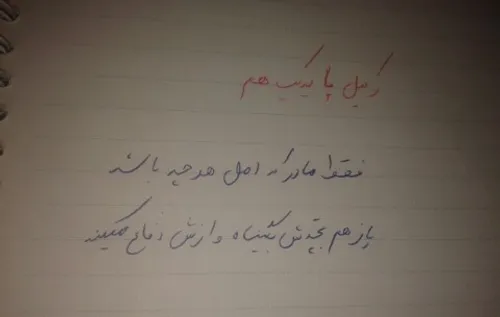 وکیل پایه یک هم
فقط مادر که اصل هر چه باشد
باز هم بچه‌ش بیگناه و ازش دفاع میکند